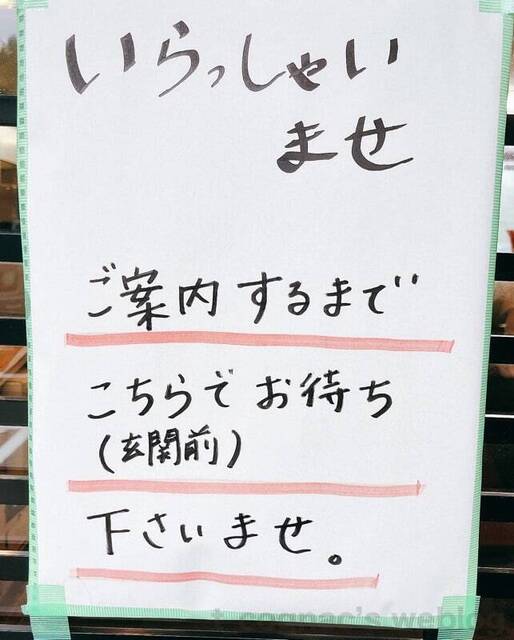 いらっしゃい
ませ
ご案内するまで
こちらでお待ち
(玄関前)
下さいませ。
t cognac's weblog